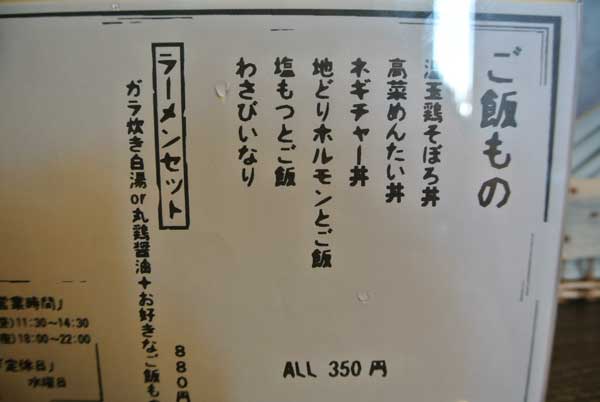 ご飯もの
温玉鶏そぼろ丼
高菜めんたい丼
ネギチャー丼
地どりホルモンとご飯
塩もつとご飯
わさびいなり
ALL 350円
ラーメンセット
ガラ炊き白湯or丸鶏醤油+お好きなご飯もの
880円
営業時間」
11:30~14:30
18:00~22:00
「定休日」
水曜日